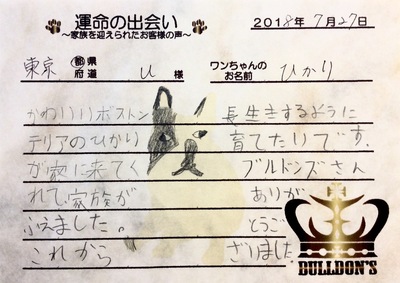 運命の出会い
～家族を迎えられたお客様の声～
2018年7月27日
東京 都道府県 U 様
ワンちゃんのお名前 ひかり
かわいいボストン
テリアのひかり
が家に来てく
れて、家族が
ふえました。
これから
長生きするように
育てたいです。
ブルドンズさん
ありが
とうご
ざいました
BULLDON'S